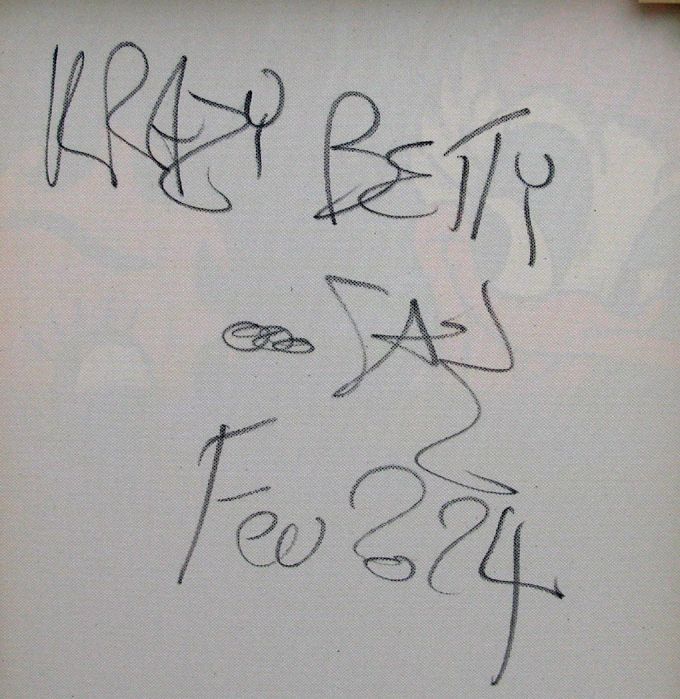 KRAZY BETTY
Fev 2024